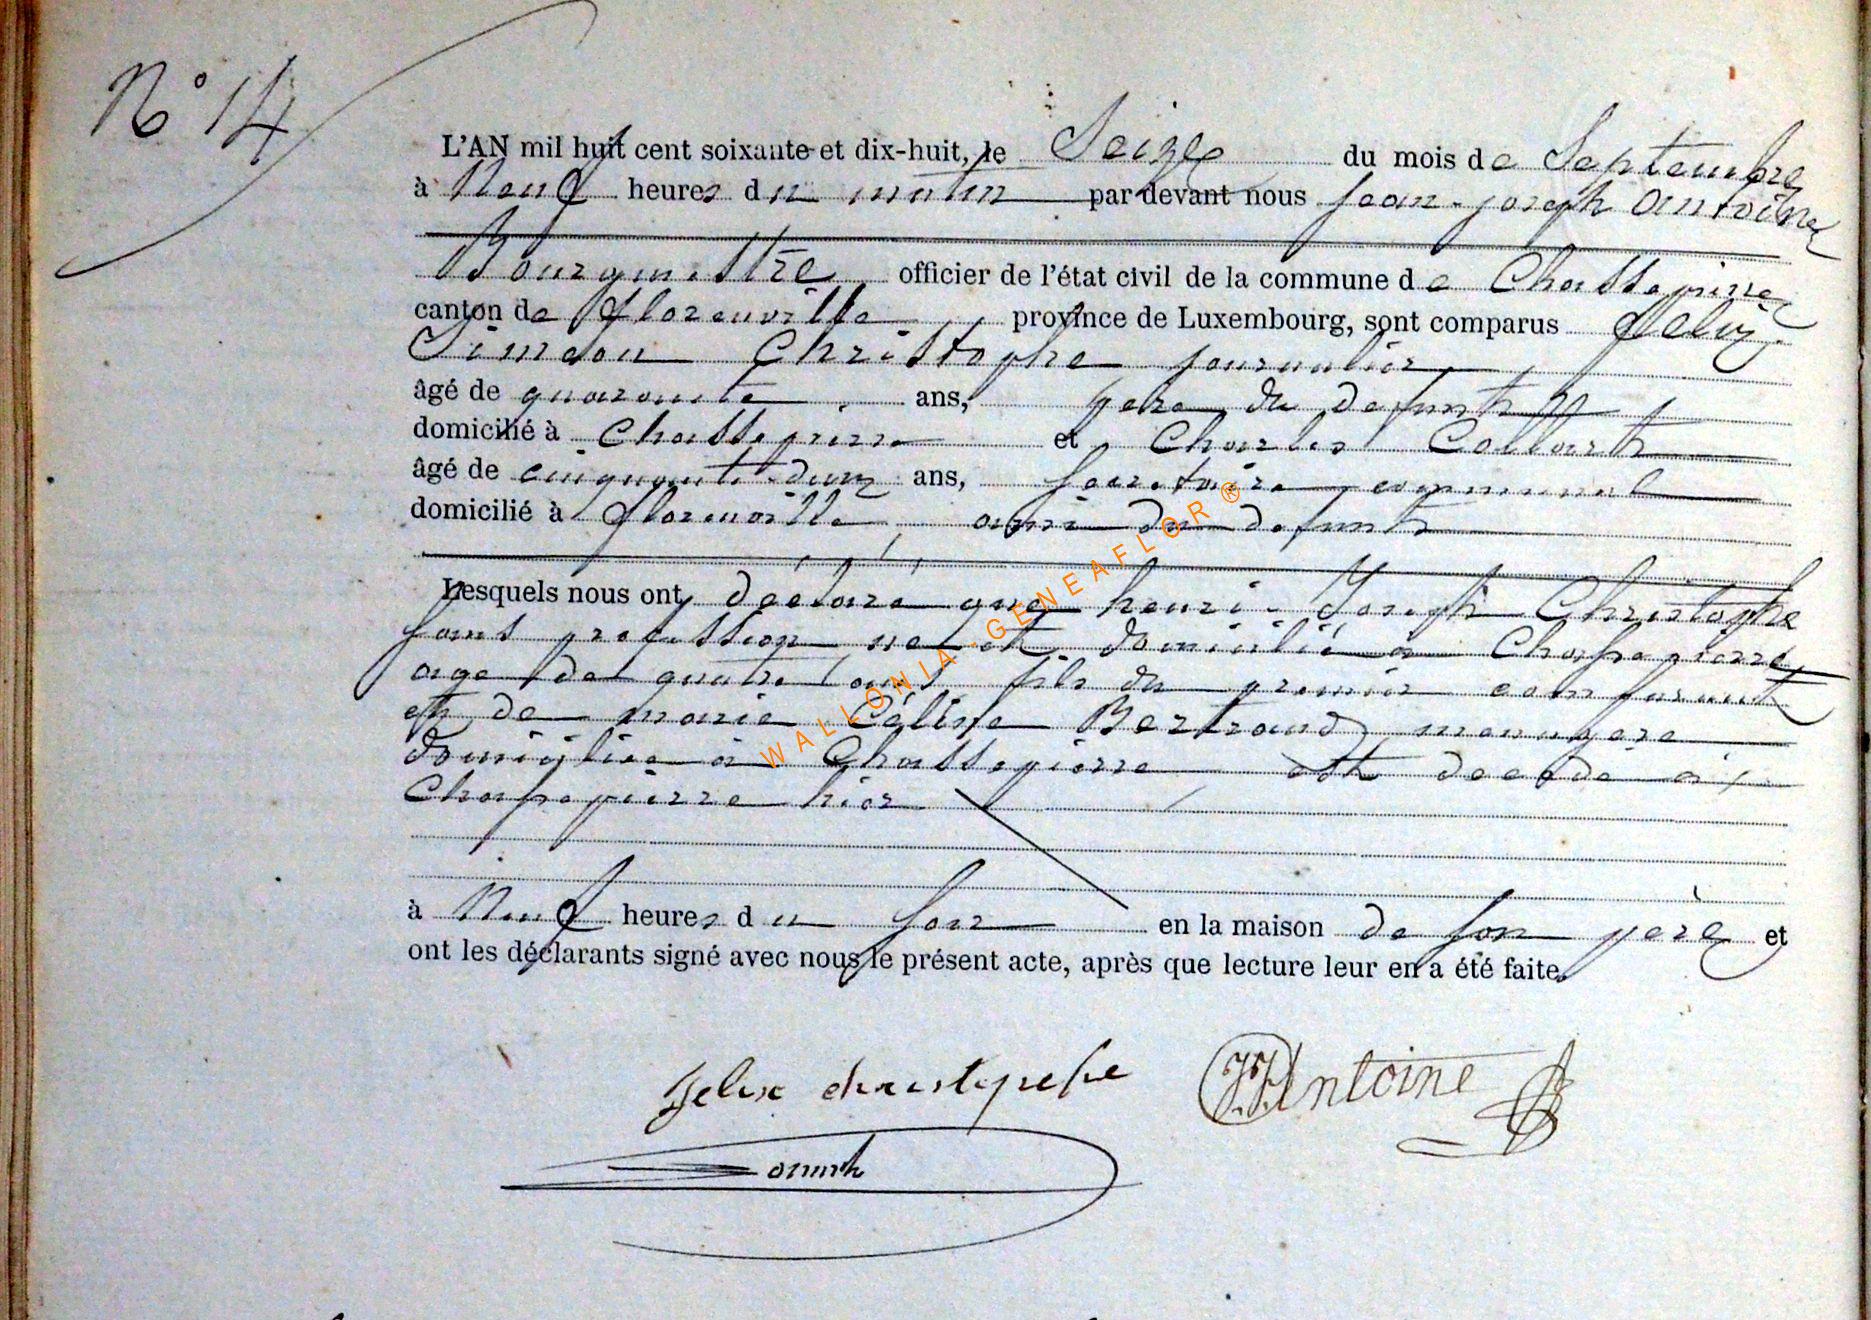 N° 14
L'AN mil huit cent soixante et dix-huit, le Seize du mois de Septembre
à Neuf heures du matin par devant nous Jean-Joseph Antoine
Bourgmestre officier de l'état civil de la commune de Chassepierre
canton de Florenville province de Luxembourg, sont comparus Félix
Siméon Christophe journalier
âgé de quarante ans, père du défunt
domicilié à Chassepierre et Charles Collart
âgé de cinquante-deux ans, secrétaire communal
domicilié à Florenville ami du défunt
Lesquels nous ont déclaré que henri-Joseph Christophe
sans profession né et domicilié à Chassepierre
age de quatre ans fils du premier comparant
et de marie Céline Bertrand menagère
domiciliée à Chassepierre est décédé à
Chassepierre hier
à Neuf heures du soir en la maison de son père et
ont les déclarants signé avec nous le présent acte, après que lecture leur en a été faite.
felix christophe JJAntoine
WALLONIA-GENEAFLOR®